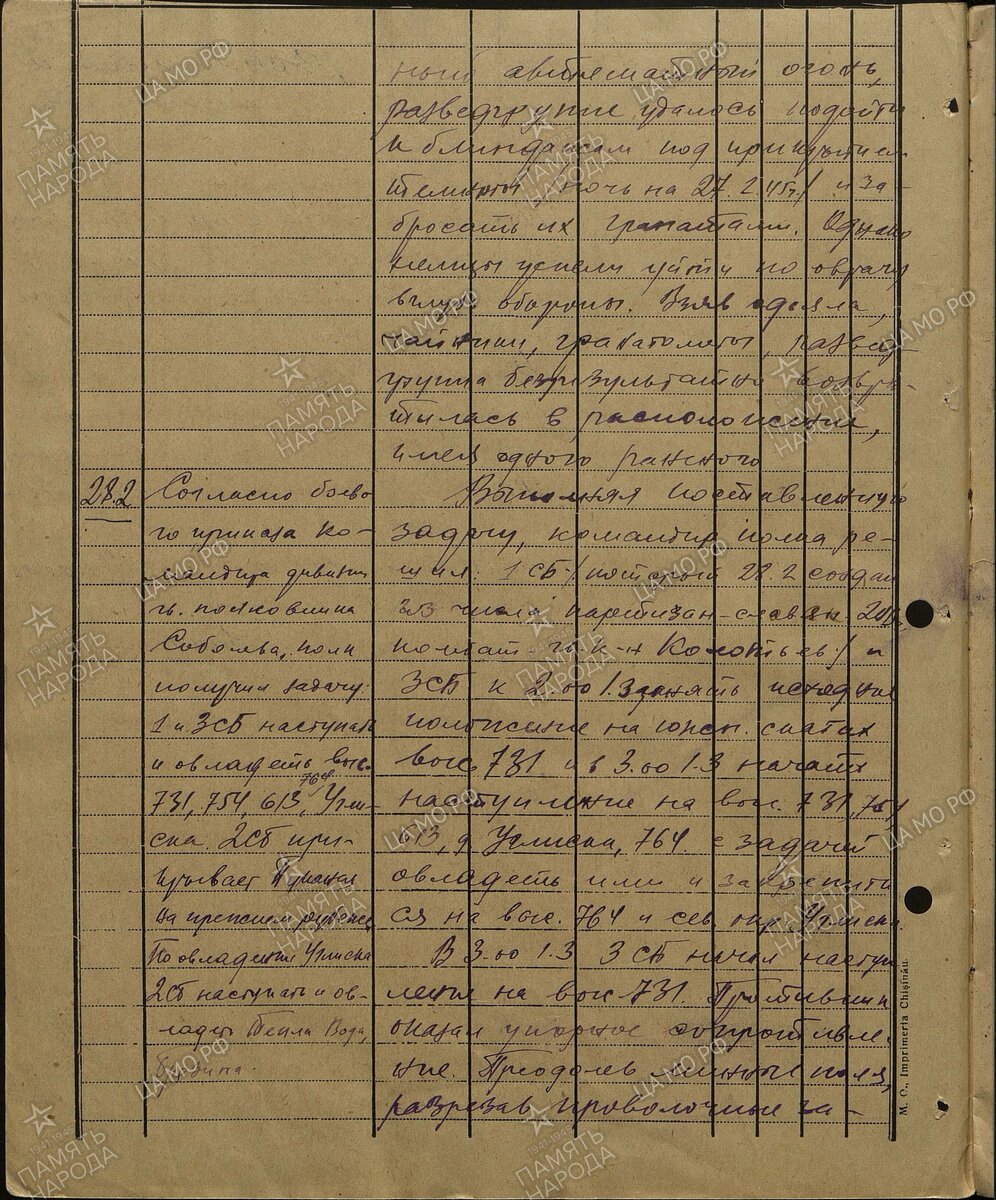 ный автоматный огонь,
разведгруппе удалось подойти
к блиндажам под прикрытием
темноты ночь на 27.2.45г/ и за-
бросать их гранатами. Однако
немцы успели уйти по оврагу
вглубь обороны. Взяв одеяла,
чайники, гранатометы, развед
группа безрезультатно возвра
тилась в расположение,
имея одного раненого
28.2
Согласно боево
го приказа ко-
мандира дивизии
гв. полковника
Соболева, полк
получил задачу:
1 и 3СБ наступать
и овладеть выс.
731, 754, 613, 764, Углиска
ска. 2СБ при-
крывает
на прежнем рубеже
По овладении Углиска
2СБ наступать и ов-
ладеть Тепла Вода,
Выполняя поставленную
задачу, командир полка ре-
шил: 1 СБ /который 28.2 создан
из числа партизан-словян
комбат - гв. к-н Колотьев/ и
3СБ к 2.00 1.3 занять исходное
положение на южн. скатах
выс. 731 и в 3.00 1.3 начать
наступление на выс. 731, 754
613, д. Углиска, 764 с задачей
овладеть ими и закрепить
ся на выс. 764 и сев. окр. Углиска.
В 3.00 1.3 3 СБ начал наступ
ление на выс. 731. Противник
оказал упорное сопротивле-
ние. Преодолев минные поля,
разрезав проволочные за-
М. С., Imprimeria Chişinău.
ПАМЯТЬ НАРОДА
1941-1945
ЦАМО.РФ